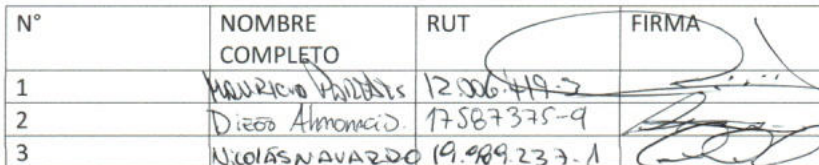 N° NOMBRE COMPLETO RUT FIRMA
1 MAURICIO PAREDES 12.006.419-3
2 DIEGO Almonacid. 17587375-9
3 NICOLÁS NAVARRO 19.989.237-1